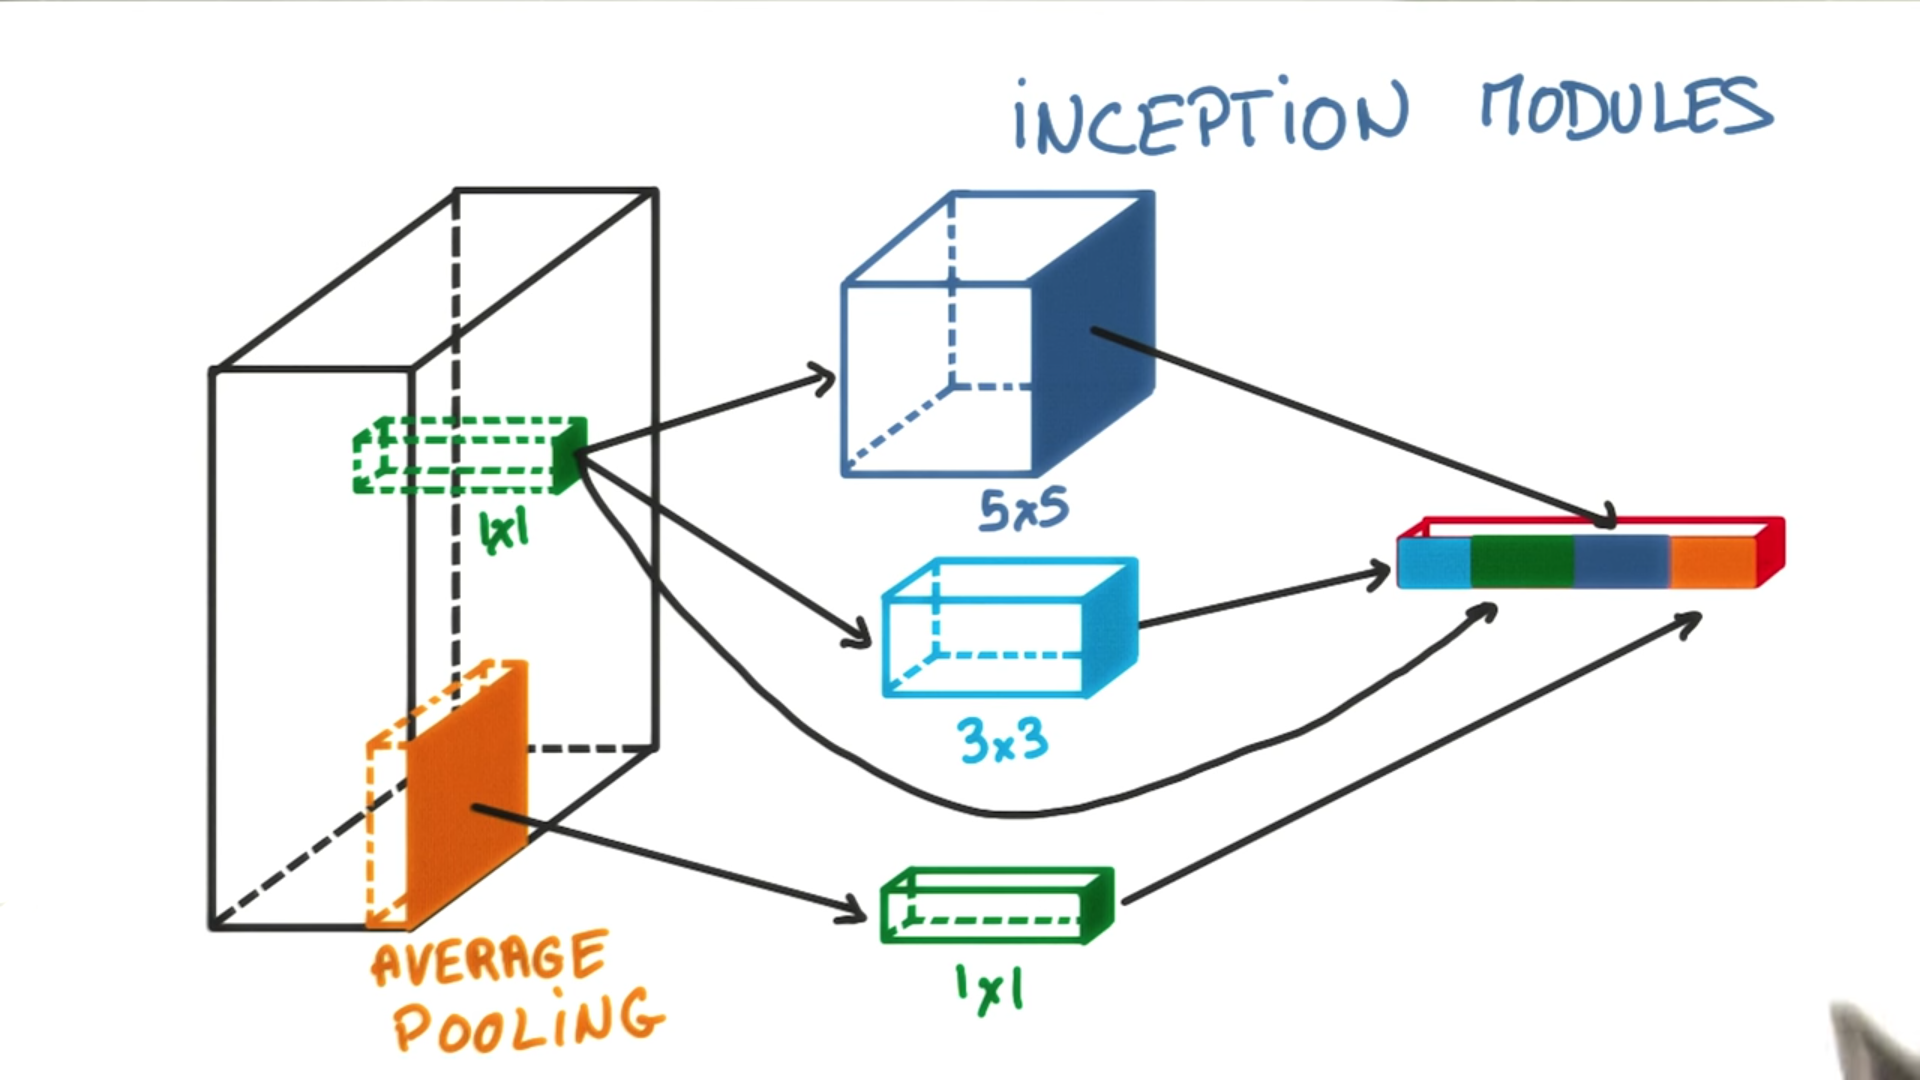 iNCEPTiON MODULES
1x1
5x5
3x3
AVERAGE
POOLiNG
1x1